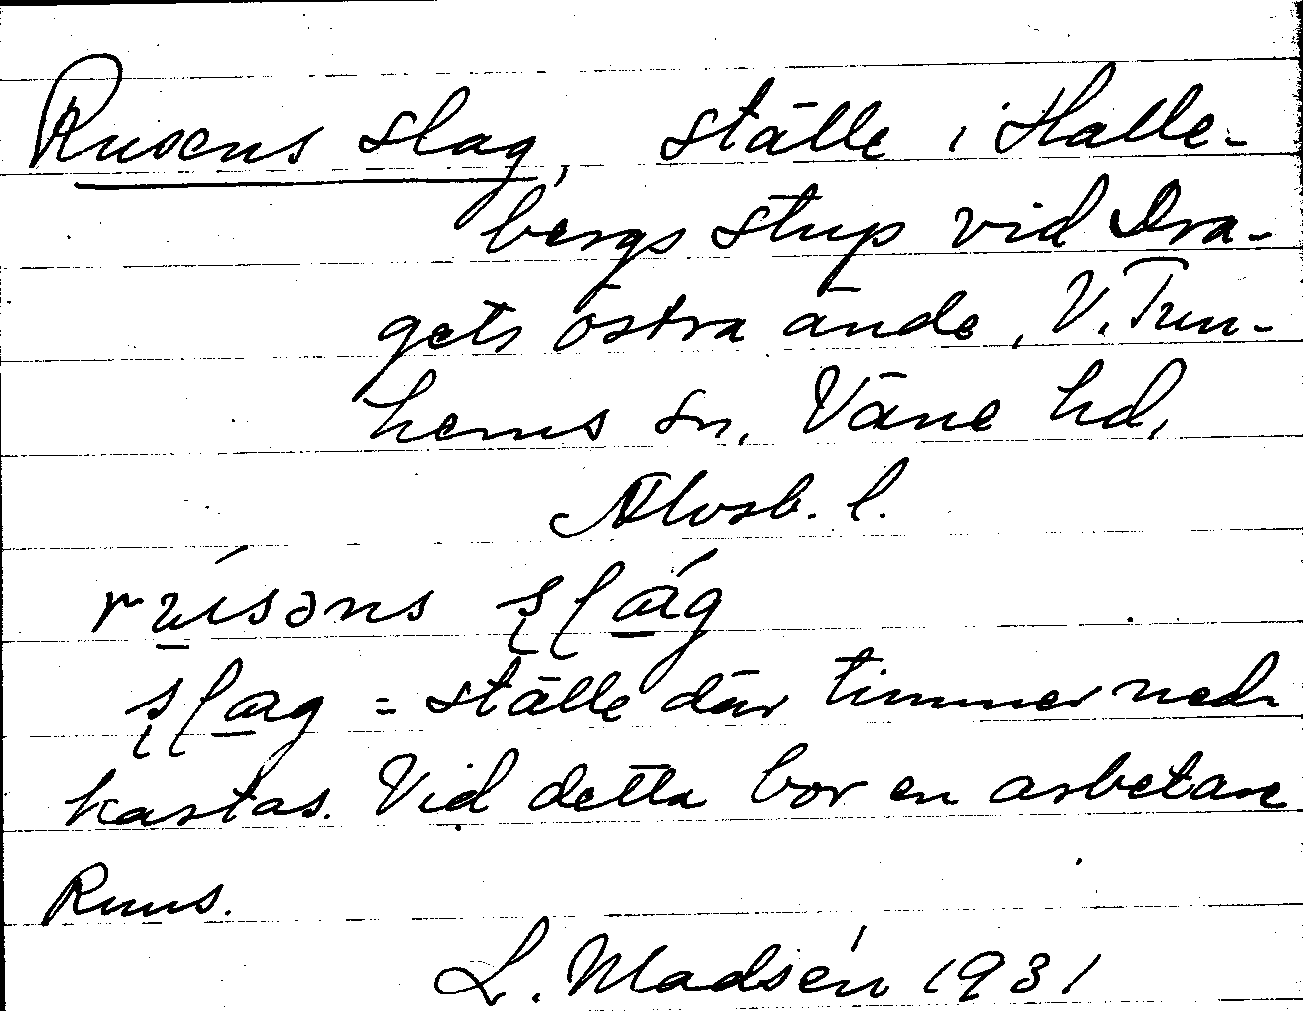 Rusens slag, ställe i Halle-
bergs stup vid Dra-
gets östra ände, V. Tun-
hems sn, Väne hd,
Älvsb. l.
rúsəns ʂɭág
ʂɭag = ställe där timmer ned-
kastas. Vid detta bor en arbetare
Ruus.
L. Madsén 1931